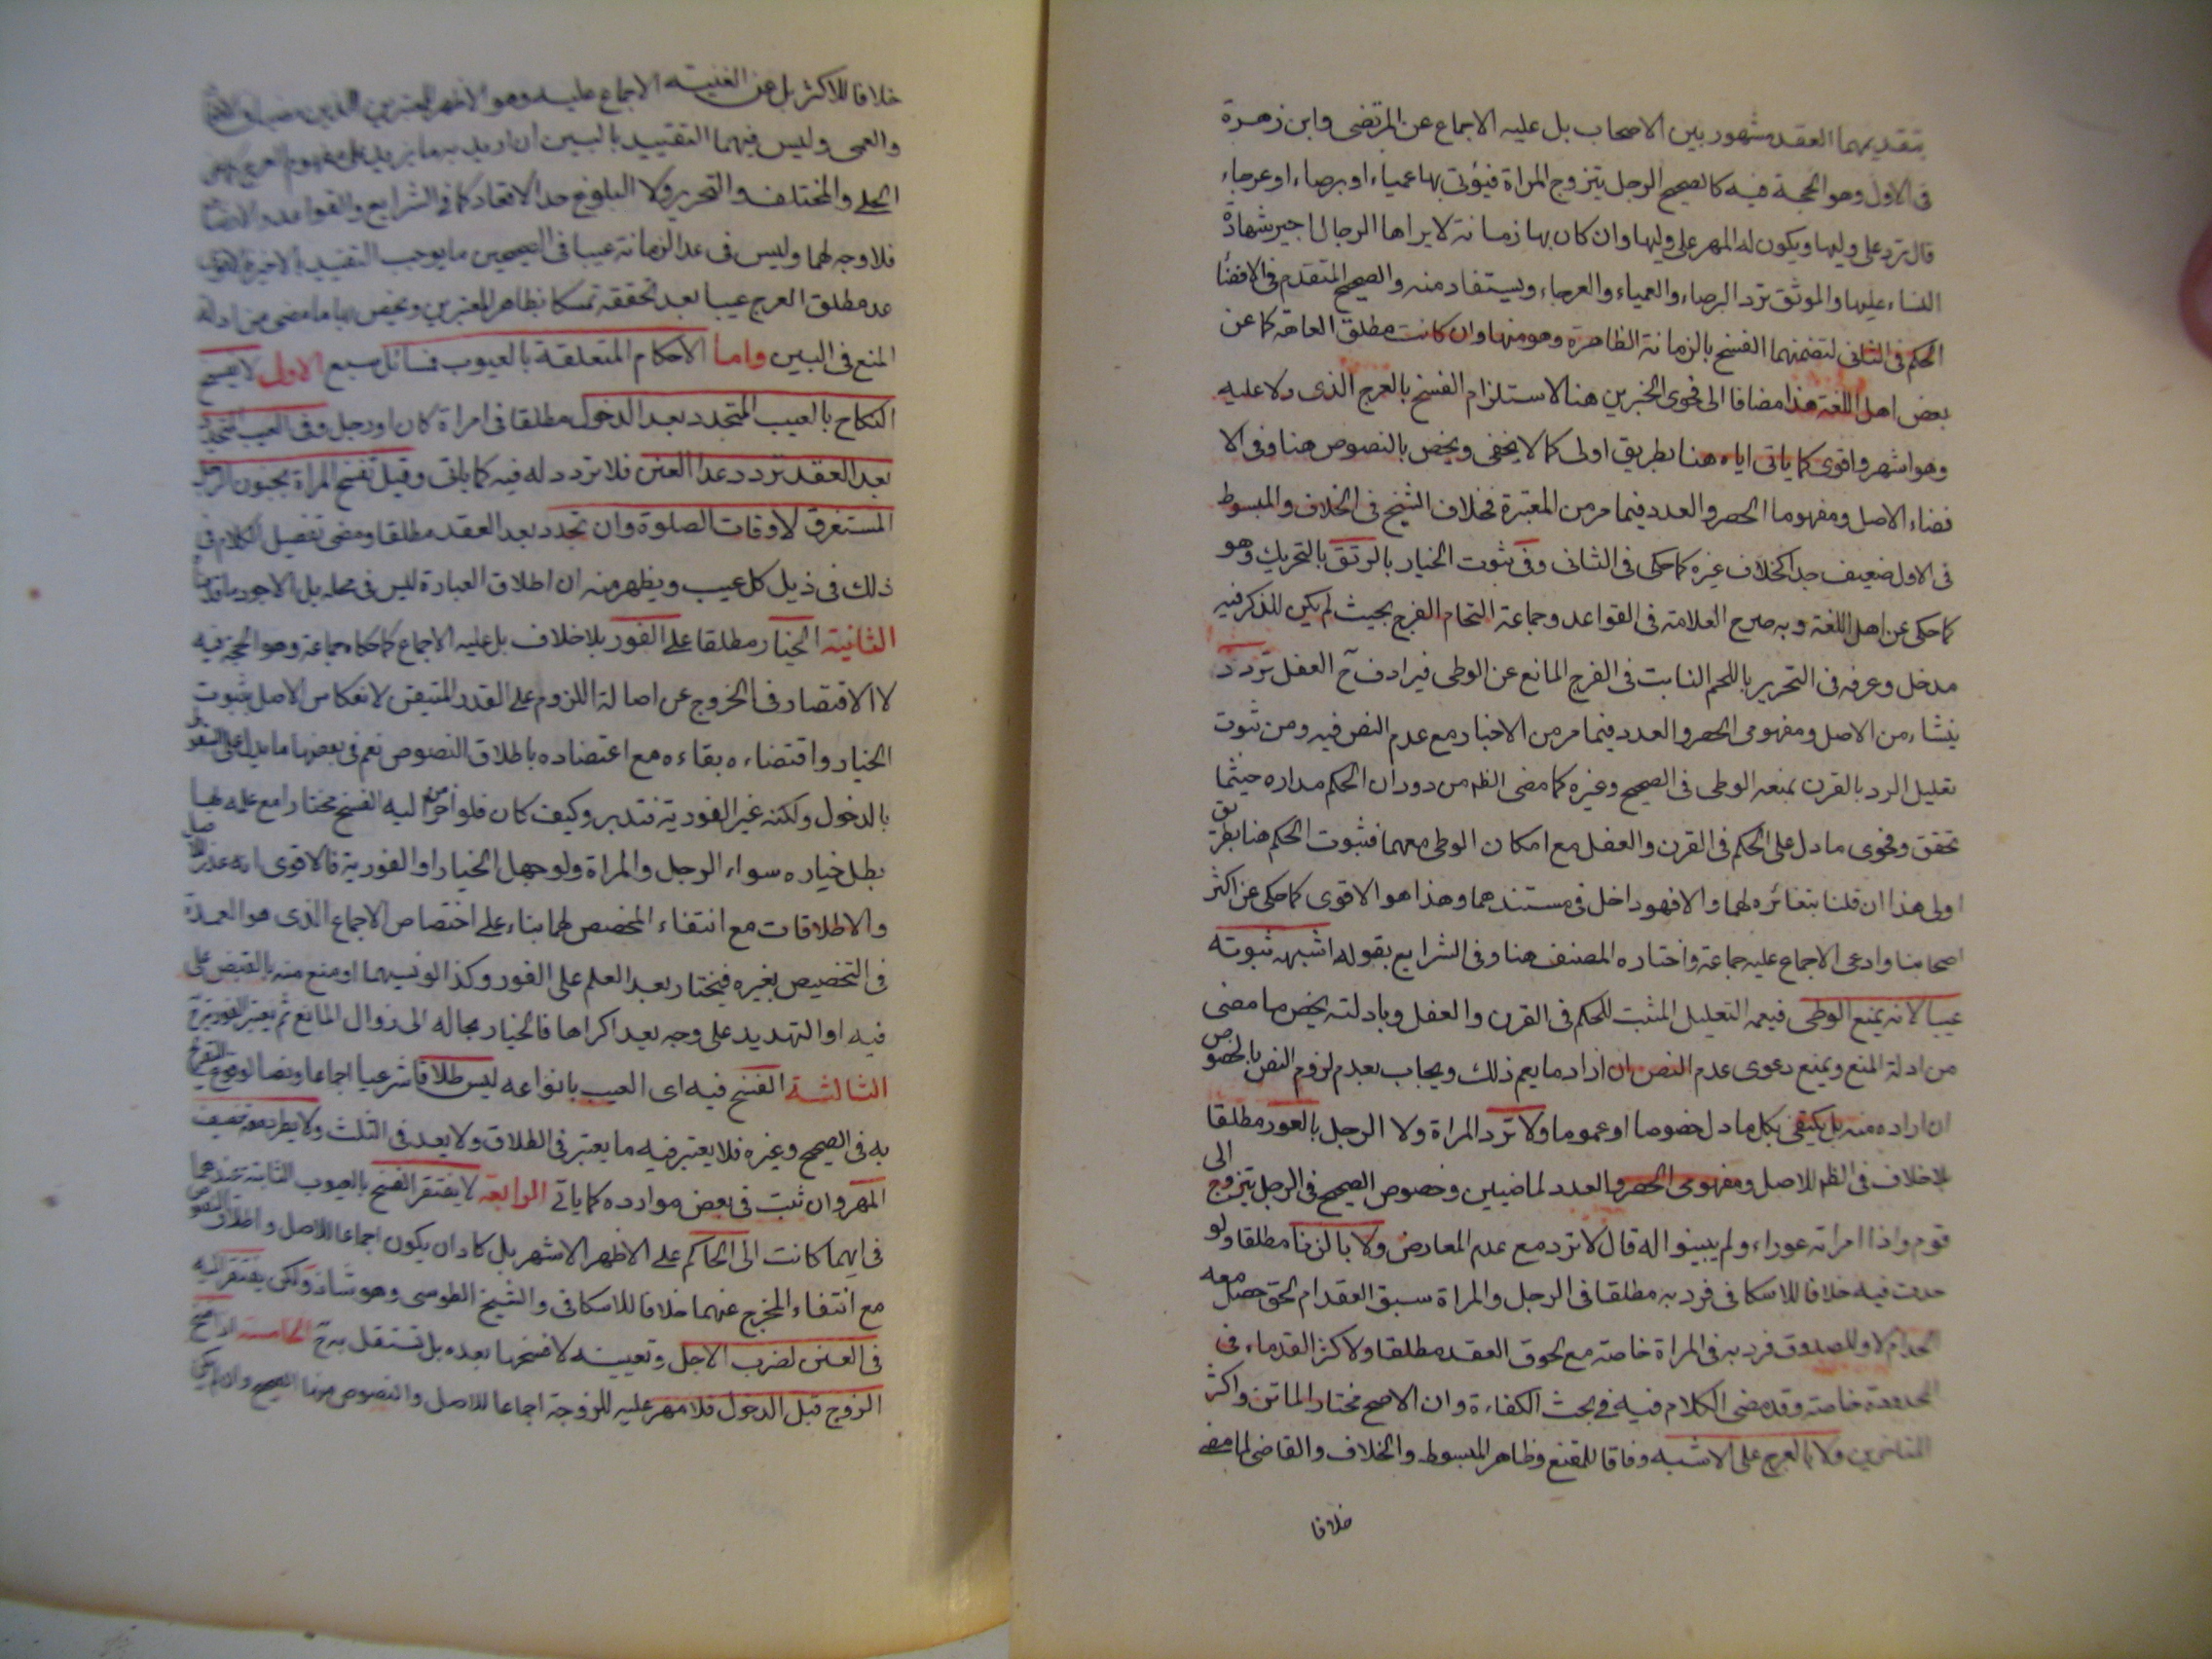 بتقديمهما العقد مشهور بين الاصحاب بل عليه الاجماع عن المرتضى وابن زهرة
فى الاول وهو الحجة فيه كالصحيح الرجل يتزوج المراة فيؤتى بها عمياء او برصاء او عرجاء
قال ترد على وليها ويكون له المهر على وليها وان كان بها زمانة لا يراها الرجال اجيز شهادة
النساء عليها والموثق ترد البرصاء والعمياء والعرجاء ويستفاد منه والصحيح المتقدم فى الافضاء
الحكم فى الثانى لتضمنهما الفسخ بالزمانة الظاهرة وهو منها وان كانت مطلق العاهة كما عن
بعض اهل اللغة هذا مضافا الى فحوى الخبرين هنا لاستلزام الفسخ بالعرج الذى دلا عليه
وهو اشهر واقوى كما ياتى اياه هنا بطريق اولى كما لا يخفى ويخص بالنصوص هنا وفى الا
فضاء الاصل ومفهوما الحصر والعدد فيما مر من المعتبرة فخلاف الشيخ فى الخلاف والمبسوط
فى الاول ضعيف جدا كخلاف غيره كما حكى فى الثانى وفى ثبوت الخيار بالرتق بالتحريك وهو
كما حكى عن اهل اللغة وبه صرح العلامة فى القواعد وجماعة التحام الفرج بحيث لم يكن للذكر فيه
مدخل وعرفه فى التحرير باللحم النابت فى الفرج المانع عن الوطى فيرادف ح العفل تردد
ينشاء من الاصل ومفهومى الحصر والعدد فيما مر من الاخبار مع عدم النص فيه ومن ثبوت
تعليل الرد بالقرن بمنعه الوطى فى الصحيح وغيره كما مضى الظ من دوران الحكم مداره حيثما
تحقق وفحوى ما دل على الحكم فى القرن والعفل مع امكان الوطى معهما فثبوت الحكم هنا بطريق
اولى هذا ان قلنا بتغائره لهما والا فهو داخل فى مستندهما وهذا هو الاقوى كما حكى عن اكثر
اصحابنا وادعى الاجماع عليه جماعة واختاره المصنف هنا وفى الشرايع بقوله اشبهه ثبوته
عيبا لانه يمنع الوطى فيعمه التعليل المثبت للحكم فى القرن والعفل وبادلته يخص ما مضى
من ادلة المنع ويمنع دعوى عدم النص ان اراد ما يعم ذلك ويجاب بعدم لزوم النص بالخصوص
ان اراده منه بل يكتفى بكل ما دل خصوصا او عموما ولا ترد المراة ولا الرجل بالعور مطلقا
بلا خلاف فى الظ للاصل ومفهومى الحصر والعدد الماضيين وخصوص الصحيح فى الرجل يتزوج الى
قوم واذا امراته عوراء ولم يبينوا له قال لا ترد مع عدم المعارض ولا بالزنا مطلقا ولو
حدت فيه خلافا للاسكافى فرد به مطلقا فى الرجل والمراة سبق العقد ام لحق حصل معه
الحد ام لا وللصدوق فرد به فى المراة خاصة مع لحوق العقد مطلقا ولاكثر القدماء فى
المحدودة خاصة وقد مضى الكلام فيه فى بحث الكفاءة وان الاصح مختار الماتن واكثر
المتاخرين ولا بالعرج على الاشبه وفاقا للمقنع وظاهر المبسوط والخلاف والقاضى لما مضى
خلافا
خلافا للاكثر بل عن الغنية الاجماع عليه وهو الاظهر
والعمى وليس فيهما التقييد بالبين ان اريد به ما يزيد على مفهوم العرج كما عن
الحلى والمختلف والتحرير ولا البلوغ حد الاقعاد كما فى الشرايع والقواعد
فلا وجه لهما وليس فى عد الزمانة عيبا فى الصحيحين ما يوجب التقييد بالاخير
عد مطلق العرج عيبا بعد تحققه تمسكا بظاهر المعتبرين ويخص بها ما مضى من ادلة
المنع فى البين واما الاحكام المتعلقة بالعيوب فمسائل سبع الاولى لا يفسخ
النكاح بالعيب المتجدد بعد الدخول مطلقا فى امراة كان او رجل وفى العيب المتجدد
بعد العقد تردد عدا العنن فلا تردد له فيه كما ياتى وقيل تفسخ المراة بجنون الرجل
المستغرق لاوقات الصلوة وان تجدد بعد العقد مطلقا ومضى تفصيل الكلام فى
ذلك فى ذيل كل عيب ويظهر منه ان اطلاق العبارة ليس فى محله بل الاجود ما قدمنا
الثانية الخيار مطلقا على الفور بلا خلاف بل عليه الاجماع كما حكاه جماعة وهو الحجة فيه
لا الاقتصار فى الخروج عن اصالة اللزوم على القدر المتيقن لانعكاس الاصل بثبوت
الخيار واقتضاءه بقاءه مع اعتضاده باطلاق النصوص نعم فى بعضها ما يدل على السقوط
بالدخول ولكنه غير الفورية فتدبر وكيف كان فلو اخر من اليه الفسخ مختارا مع علمه بها
بطل خياره سواء الرجل والمراة ولو جهل الخيار او الفورية فالاقوى انه عذر للاصل
والاطلاقات مع انتفاء المخصص لهما بناء على اختصاص الاجماع الذى هو العمدة
فى التخصيص بغيره فيختار بعد العلم على الفور وكذا لو نسيهما او منع منه بالقبض على
فيه او التهديد على وجه يعد اكراها فالخيار بحاله الى زوال المانع ثم يعتبر الفورية ح
الثالثة الفسخ فيه اى العيب بانواعه ليس طلاقا شرعيا اجماعا ونصا لوقوع التصريح
به فى الصحيح وغيره فلا يعتبر فيه ما يعتبر فى الطلاق ولا يعد فى الثلث ولا يطرد معه تنصيف
المهر وان ثبت فى بعض موارده كما ياتى الرابعة لا يفتقر الفسخ بالعيوب الثابتة عندهما
فى ايهما كانت الى الحاكم على الاظهر الاشهر بل كاد ان يكون اجماعا للاصل واطلاق النصوص
مع انتفاء المخرج عنهما خلافا للاسكافى والشيخ الطوسى وهو شاذ ولكن يفتقر اليه
فى العنن لضرب الاجل وتعيينه لا فسخها بعده بل تستقل به ح الخامسة اذا فسخ
الزوج قبل الدخول فلا مهر عليه للزوجة اجماعا للاصل والنصوص منها الصحيح وان لم يكن